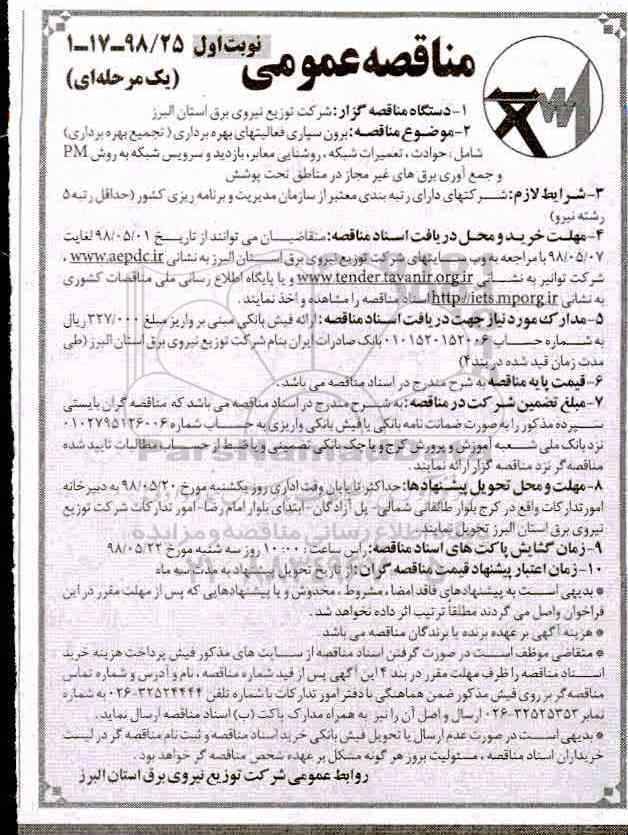 مناقصه عمومی نوبت اول ۹۸/۲۵-۱۷-۱
(یک مرحله‌ای)
۱- دستگاه مناقصه گزار: شرکت توزیع نیروی برق استان البرز
۲- موضوع مناقصه: برون سپاری فعالیتهای بهره برداری (تجمیع بهره برداری)
شامل: حوادث، تعمیرات شبکه، روشنایی معابر، بازدید و سرویس شبکه به روش PM
و جمع آوری برق های غیر مجاز در مناطق تحت پوشش
۳- شرایط لازم: شرکتهای دارای رتبه بندی معتبر از سازمان مدیریت و برنامه ریزی کشور (حداقل رتبه ۵
رشته نیرو)
۴- مهلت خرید و محل دریافت اسناد مناقصه: متقاضیان می توانند از تاریخ ۹۸/۰۵/۰۱ لغایت
۹۸/۰۵/۰۷ با مراجعه به وب سایتهای شرکت توزیع نیروی برق استان البرز به نشانی www.aepdc.ir ،
شرکت توانیر به نشانی www.tender.tavanir.org.ir و یا پایگاه اطلاع رسانی ملی مناقصات کشوری
به نشانی http://iets.mporg.ir اسناد مناقصه را مشاهده و اخذ نمایند.
۵- مدارک مورد نیاز جهت دریافت اسناد مناقصه: ارائه فیش بانکی مبنی بر واریز مبلغ ۳۲۷/۰۰۰ ریال
به شماره حساب ۰۱۰۱۵۲۰۱۵۲۰۰۶ بانک صادرات ایران بنام شرکت توزیع نیروی برق استان البرز (طی
مدت زمان قید شده در بند ۴)
۶- قیمت پایه مناقصه به شرح مندرج در اسناد مناقصه می باشد.
۷- مبلغ تضمین شرکت در مناقصه: به شرح مندرج در اسناد مناقصه می باشد که مناقصه گران بایستی
سپرده مذکور را به صورت ضمانت نامه بانکی یا فیش بانکی واریزی به حساب شماره ۰۱۰۲۷۹۵۱۲۶۰۰۶
نزد بانک ملی شعبه آموزش و پرورش کرج و یا چک بانکی تضمینی و یا ضبط از حساب مطالبات تایید شده
مناقصه گر نزد مناقصه گزار ارائه نمایند.
۸- مهلت و محل تحویل پیشنهادها: حداکثر تا پایان وقت اداری روز یکشنبه مورخ ۹۸/۰۵/۲۰ به دبیرخانه
امور تدارکات واقع در کرج بلوار طالقانی شمالی- پل آزادگان- ابتدای بلوار امام رضا- امور تدارکات شرکت توزیع
نیروی برق استان البرز تحویل نمایند.
۹- زمان گشایش پاکت های اسناد مناقصه: راس ساعت ۱۰:۰۰ روز سه شنبه مورخ ۹۸/۰۵/۲۲
۱۰- زمان اعتبار پیشنهاد قیمت مناقصه گران: از تاریخ تحویل پیشنهاد به مدت سه ماه
* بدیهی است به پیشنهادهای فاقد امضاء، مشروط، مخدوش و یا پیشنهادهایی که پس از مهلت مقرر در این
فراخوان واصل می گردند مطلقاً ترتیب اثر داده نخواهد شد.
* هزینه آگهی بر عهده برنده یا برندگان مناقصه می باشد.
* متقاضی موظف است در صورت گرفتن اسناد مناقصه از سایت های مذکور فیش پرداخت هزینه خرید
اسناد مناقصه را ظرف مهلت مقرر در بند ۴ این آگهی پس از قید شماره مناقصه، نام و آدرس و شماره تماس
مناقصه گر بر روی فیش مذکور ضمن هماهنگی با دفتر امور تدارکات با شماره تلفن ۳۲۵۲۴۴۴۴-۰۲۶ به شماره
نمابر ۳۲۵۲۵۳۵۳-۰۲۶ ارسال و اصل آن را نیز به همراه مدارک پاکت (ب) اسناد مناقصه ارسال نماید.
* بدیهی است در صورت عدم ارسال یا تحویل فیش بانکی خرید اسناد مناقصه و ثبت نام مناقصه گر در لیست
خریداران اسناد مناقصه، مسئولیت بروز هر گونه مشکل بر عهده شخص مناقصه گر خواهد بود.
روابط عمومی شرکت توزیع نیروی برق استان البرز